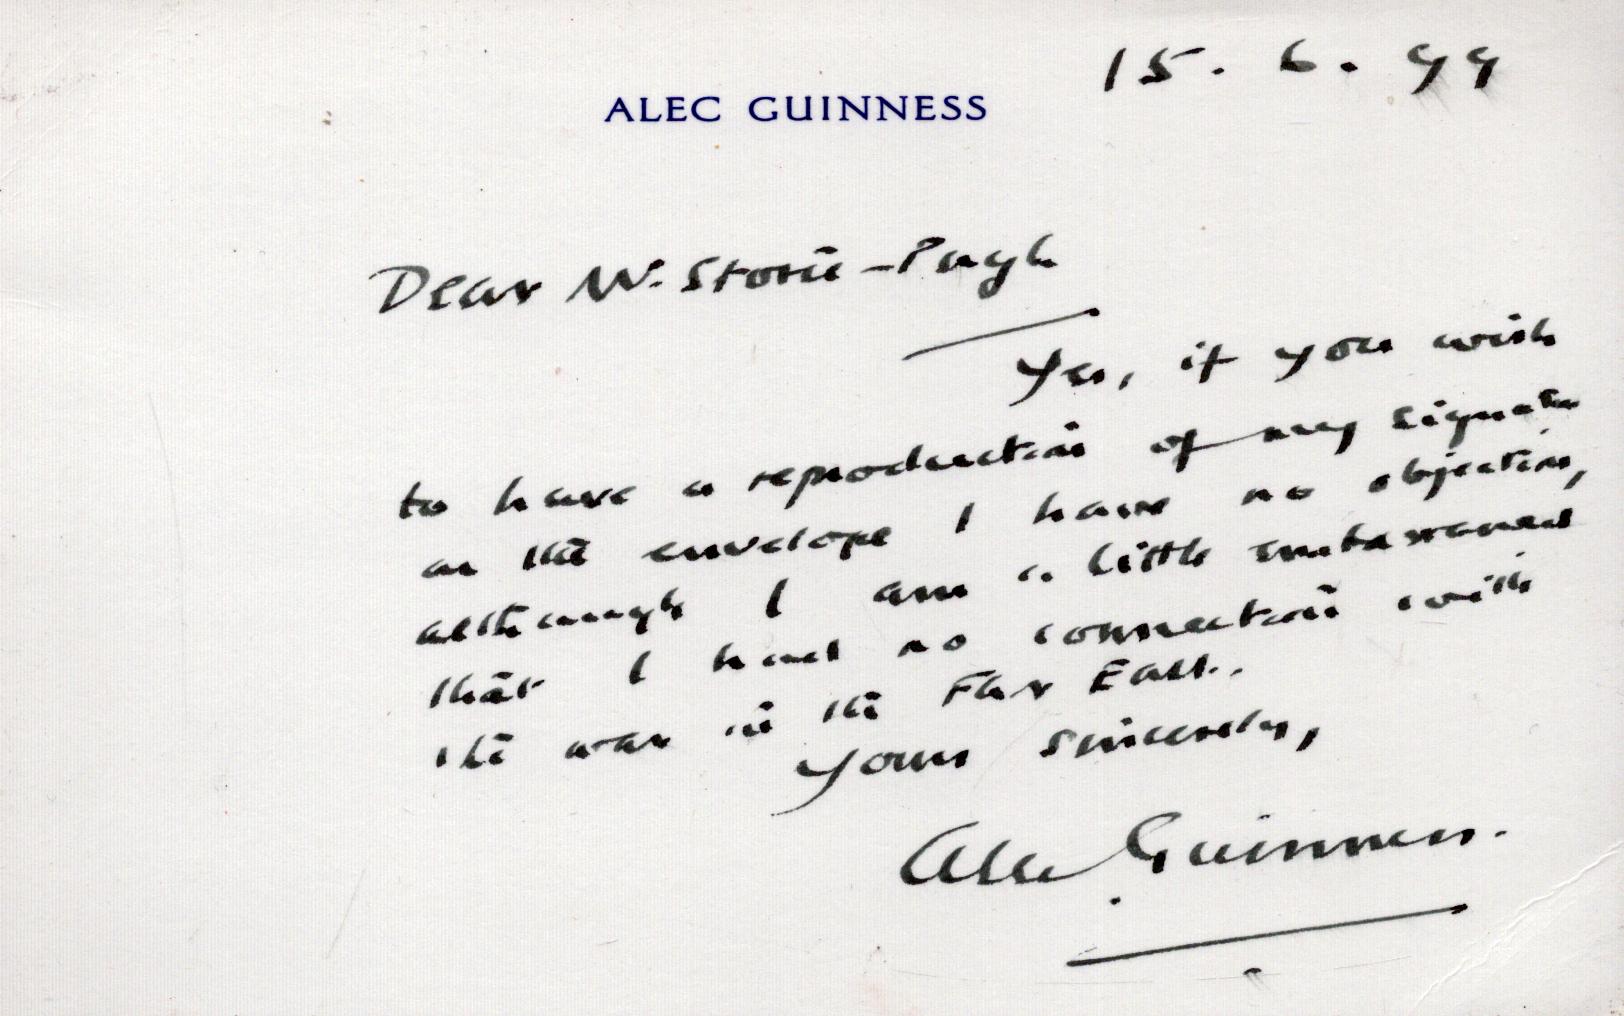 15. 6. 99
ALEC GUINNESS
Dear Mr. Storie-Pugh
Yes, if you wish
to have a reproduction of my signature
on the envelope I have no objection,
although I am a little embarrassed
that I had no connection with
the war in the Far East.
Yours sincerely,
Alec Guinness.